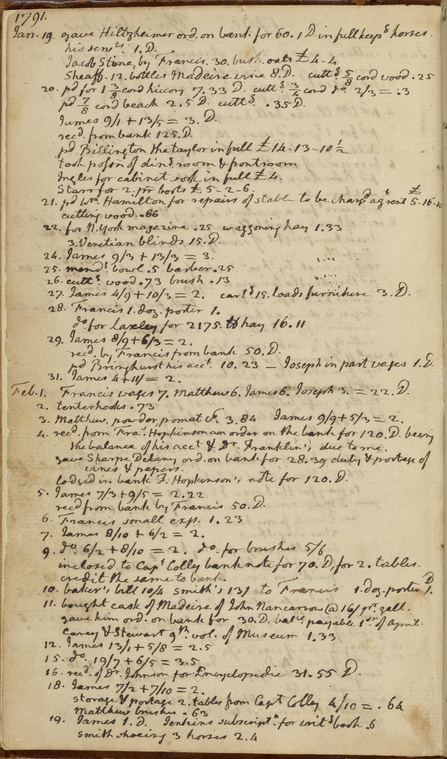 1791.
Jan. 19. gave Hiltzheimer ord. on bank for 60.1 D in full keepg horses.
his servts 1. D.
Jacob Stine, by Francis. 30. bush. oats £4-4
Sheaff. 12. bottles Madeire vine 8.D. cuttg 5/8 cord wood .25
20. pd for 1 3/4 cord hiccory 7.33 D. cuttg 3/4 cord do 2/3 = .3
pd 7/8 cord beach 2.5 D. cuttg .35 D.
James 9/1 + 13/5 = 3. D.
recd. from bank 125. D.
pd Billington the taylor in full £14-13-10 1/2
took possn of ding room & frontroom
Ingles for cabinet work in full £4.
Starr for 2. pr boots £5-2-6
21. pd Wm. Hamilton for repairs of stable to be chargd agt rent £5-16-
cutting wood. .66
22. for N. York magazine .25 waggoning hay 1.33
3. Venetian blinds 15. D.
24. James 9/3 + 13/3 = 3.
25. mendg bowl .5 barber .25
26. cuttg wood .73 brush .13
27. James 4/9 + 10/3 = 2. cartg 15. loads furniture 3. D.
28. Francis 1. doz. porter 1.
do for Laxley for 2175. tt hay 16.11
29. James 8/9 + 6/3 = 2.
recd. by Francis from bank 50. D.
pd Bringhurst his acct. 10.23 — Joseph in part wages 1. D.
31. James 4 + 11/ = 2.
Feb. 1. Francis wages 7. Matthew 6. James 6. Joseph 3. = 22. D.
2. tenterhooks .73
3. Matthew, powder, pomat. &c. 3.84 James 9/9 + 5/3 = 2.
4. recd. from Fras. Hopkinson an order on the bank for 120. D. being
the balance of his acct & Dr. Franklin's, due to me.
gave Sharpe Delany ord. on bank for 28.39 duty & portage of
vines & papers.
lodged in bank F. Hopkinson's note for 120. D.
5. James 7/3 + 9/5 = 2.22
recd from bank by Francis 50. D.
6. Francis small exp. 1.23
7. James 8/10 + 6/2 = 2.
9. do. 6/2 + 8/10 = 2. do. for brushes 5/6
inclosed to Capt Colley bank note for 70. D, for 2. tables.
credit the same to bank.
10. baker's bill 10/4 smith's 13/ to Francis 1. doz. porter 1. D.
11. bought cask of Madeire of John Nancarrow @ 16/ pr. gall.
gave him ord. on bank for 30. D. balce payable 1st of April.
Carey & Stewart 9th. vol. of Museum 1.33
12. James 13/1 + 5/8 = 2.5
15. do. 19/7 + 6/5 = 3.5
16. recd. of Dr. Johnson for Encyclopedie 31.55 D.
18. James 7/2 + 7/10 = 2.
storage & portage 2. tables from Capt Colley 4/10 = .64
Matthew brushes .63
19. James 1. D. Jenkins subscriptn for writg book .6
smith shoeing 3 horses 2.4